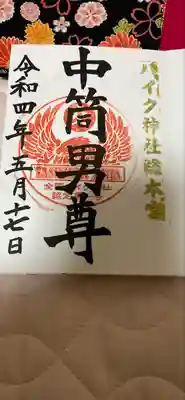 バイク神社総本宮
中筒男尊
令和四年五月十七日